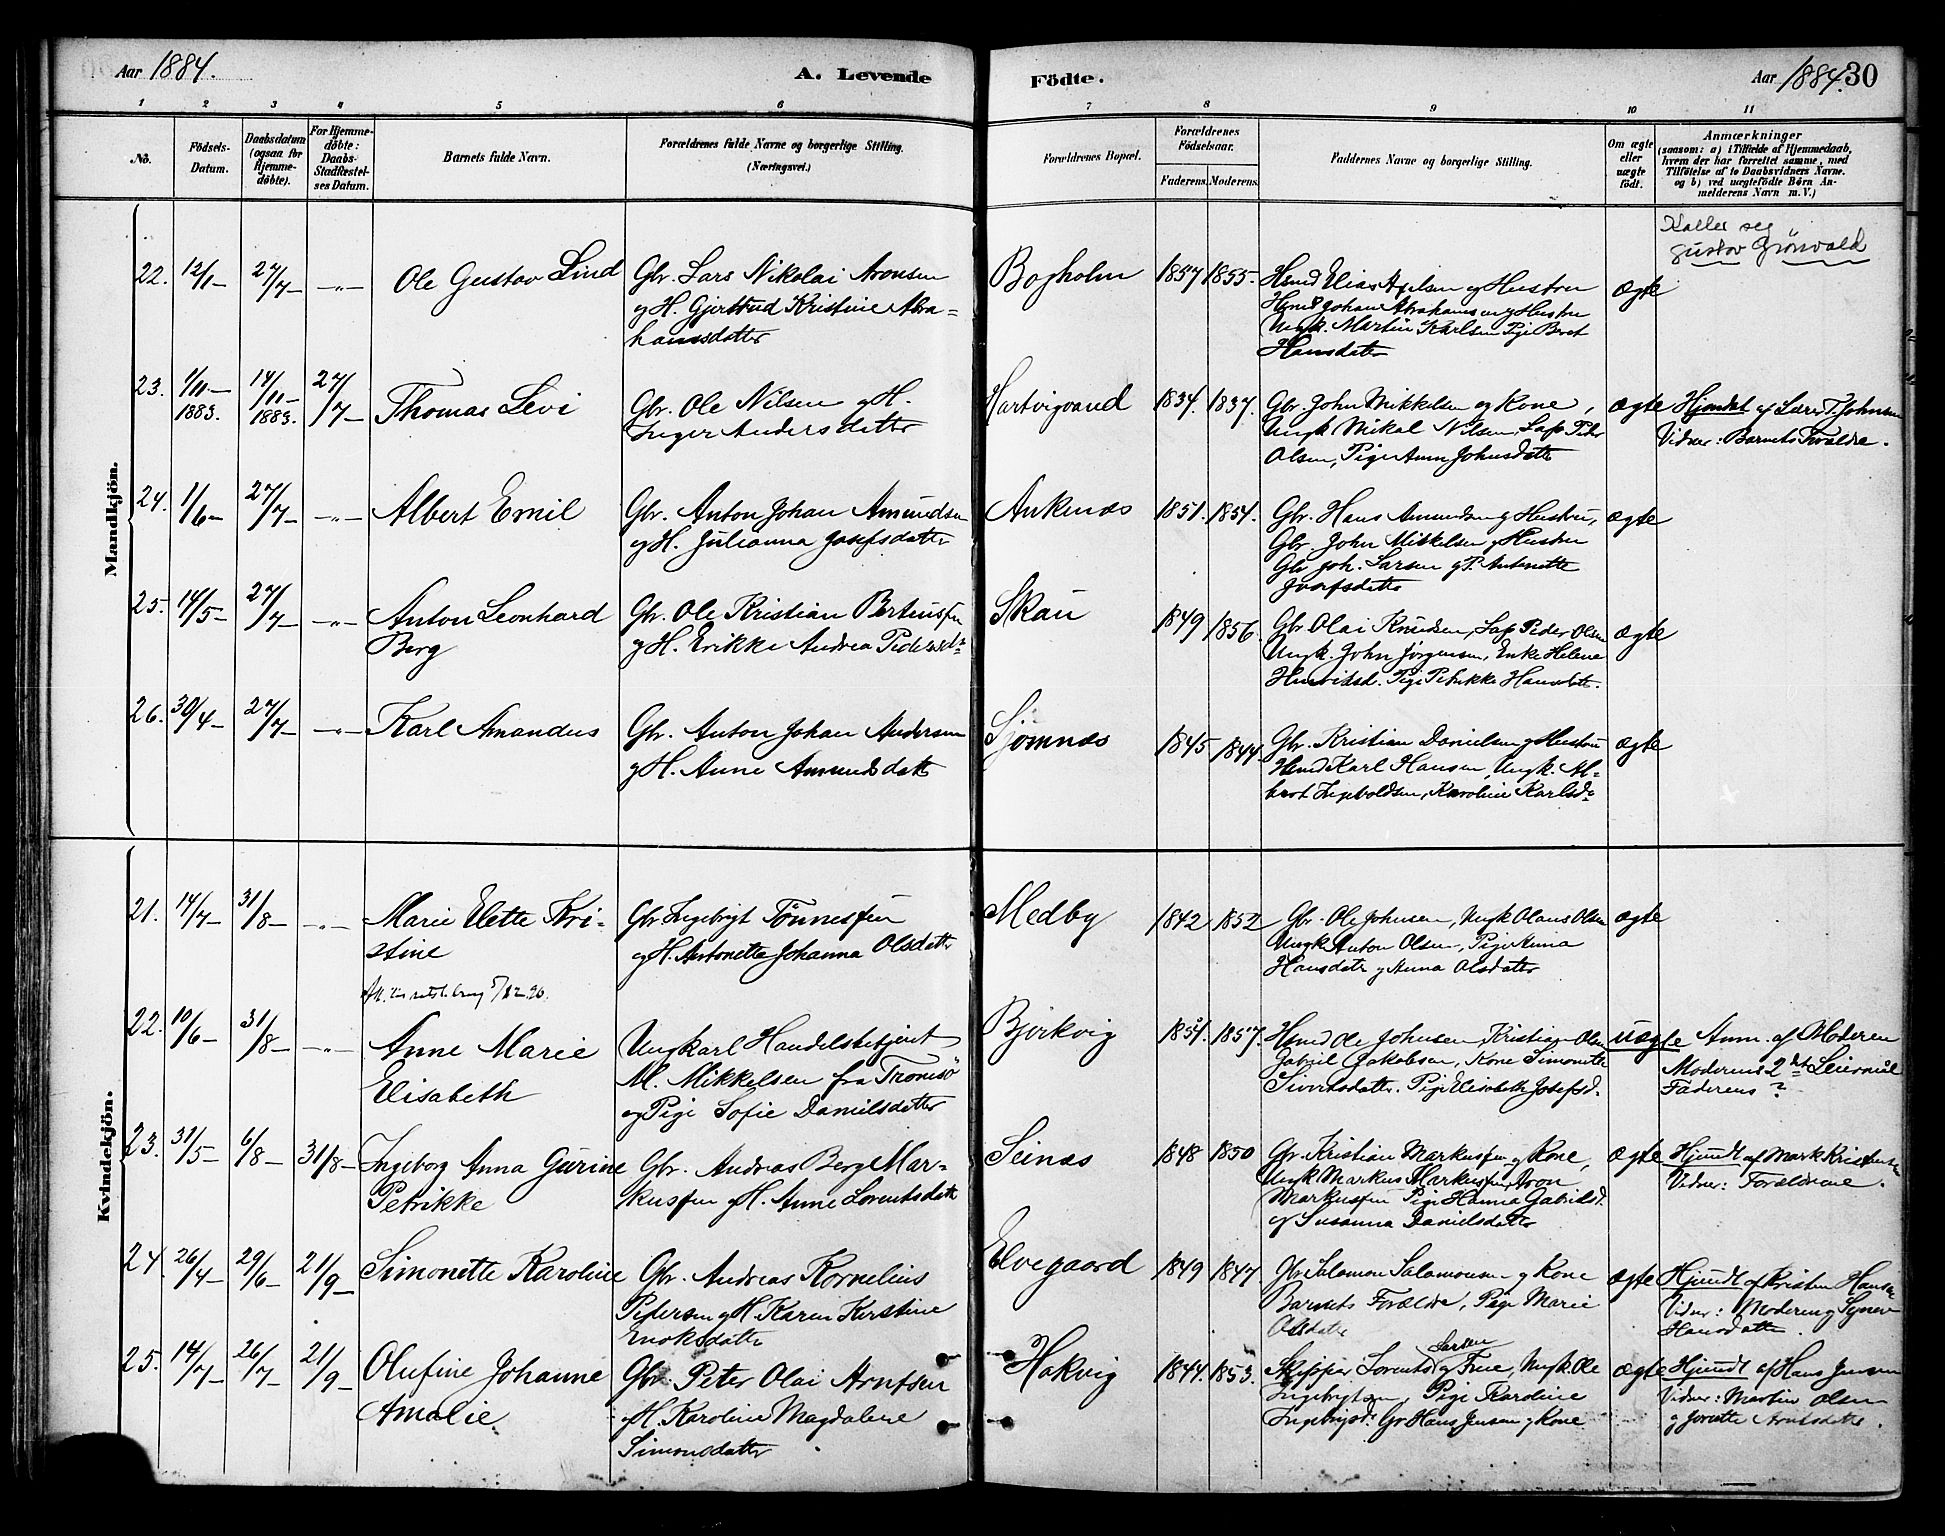 Aar 1884.
A. Levende Födte.
Aar 1884. 30
1 2 3 4 5 6 7 8 9 10 11
No.
Födsels-
Datum.
Daabsdatum
(ogsaa for
Hjemme-
döbte).
For Hjemme-
döbte:
Daabs-
Stadfæstel-
ses Datum.
Barnets fulde Navn.
Forældrenes fulde Navne og borgerlige Stilling.
(Næringsvei.)
Forældrenes Bopæl.
Forældrenes
Födselsaar.
Faderens. Moderens.
Faddernes Navne og borgerlige Stilling.
Om ægte
eller
uægte
födt.
Anmærkninger
(saasom: a) i Tilfælde af Hjemmedaab,
hvem der har forrettet samme, med
Tilföielse af to Daabsvidners Navne.
og b) ved uægtefödte Börn An-
melderens Navn m. V.)
Mandkjön.
Kaller seg
Gustov Grönvald
22. 12/1 27/7 -"- Ole Gustav Lind
Gbr. Lars Nikolai Aronsen
og H. Gjertrud Kristine Abra=
hamsdatter
Bogholm 1857 1855.
Hsmd Elias Apelsen og Hustru
Hsmd Johan Abrahamsen og Hustru
Ungk. Martin Karlsen Pige Beret
Hansdatter
ægte
23. 1/10 1883. 14/11 1883. 27/7 Thomas Levi
Gbr. Ole Nilsen og H.
Inger Andersdatter
Hartvigvand 1834. 1837.
Gbr. John Mikkelsen og Kone,
Ungk Mikal Nilsen, Lap Peder
Olsen, Pige Anna Johnsdatter
ægte
Hjemdøbt af Lærer T. Johnsen
Vidner: Barnets Forældre.
24. 1/6 27/7 -"- Albert Emil
Gbr. Anton Johan Amundsen
og H. Julianna Josefsdatter
Ankenæs 1851. 1854.
Gbr. Hans Amundsen og Hustru,
Gbr. John Mikkelsen og Hustru
Gbr Joh. Larsen og P. Antonette
Josefsdatter
ægte
25. 14/5 27/7 -"- Anton Leonhard
Berg
Gbr. Ole Kristian Berteussen
og H. Erikke Andrea Pedersd.
Skau 1849 1856.
Gbr Olai Knudsen, Lap Peder Olsen
Ungk. John Jørgensen, Enke Helene
Pige Petrikke Hansdatter.
ægte
26. 30/4 27/7 -"- Karl Amandus
Gbr. Anton Johan Andersen
og H. Anne Amundsdatter
Sjomnæs 1845 1844
Gbr. Kristian Danielsen og Hustru
Hsmd Karl Hansen, Ungk. Al=
bert Ingeboldsen, Karoline Karlsd.
ægte
Kvindekjön.
21. 14/7 31/8 -"- Marie Elette Kri-
stine
Gbr Ingebrigt Tönnessen
og H. Antonette Johanna Olsdatter
Medby 1842 1852
Gbr. Ole Johnsen, Ungk Olaus Olsen
Ungk Anton Olsen, Pige Anna
Hansdatter og Anna Olsdatter
ægte
22. 10/6 31/8 -"- Anne Marie
Elisabeth
Ungkarl Handelsbetjent
M. Mikkelsen fra Tromsö
og Pige Sofie Danielsdatter
Bjerkvig 1854. 1857.
Hsmd Ole Johnsen, Kristian Olsen
Gabriel Jakobsen, Kone Simonette
Sivertsdatter. Pige Elisabeth Josefsd.
uægte
Anm. af Moderen
Moderens 2det Leiermaal
Faderens ?
23. 31/5 6/8 31/8 Ingeborg Anna Gurine
Petrikke
Gbr. Andreas Berg Mar-
kussen og H. Anne Lorentsdatter
Seinæs 1848 1850
Gbr. Kristian Markussen og Kone,
Ungk Markus Markussen, Aron
Markussen Pige Hanna Gabrielsd.
og Susanna Danielsdatter
ægte
Hjemdt af Mark Kristensen
Vidner: Forældrene.
24. 26/4 29/6 21/9 Simonette Karoline
Gbr. Andreas Kornelius
Pedersen og H. Karen Kerstine
Enoksdatter
Elvegaard 1849 1847
Gbr Salamon Salamonsen og Kone
Barnets Forældre, Pige Marie
Olsdatter
ægte
Hjemdt af Kristen Hansen
Vidner: Moderen og
Hansdatter.
25. 14/7 26/7 21/9 Olufine Johanne
Amalie
Gbr. Peter Olai Arntsen
og H. Karoline Magdalene
Simonsdatter
Hakvig 1844. 1853.
Larsen
Skipper Lorents og Frue, Ungk. Ole
Ingebrigtsen, Pige Karoline
Ingebrigtsd. Gbr Hans Jensen og Kone
ægte
Hjemdt af Hans Jensen
Vidner: Martin Olsen
og Arntsdatter.